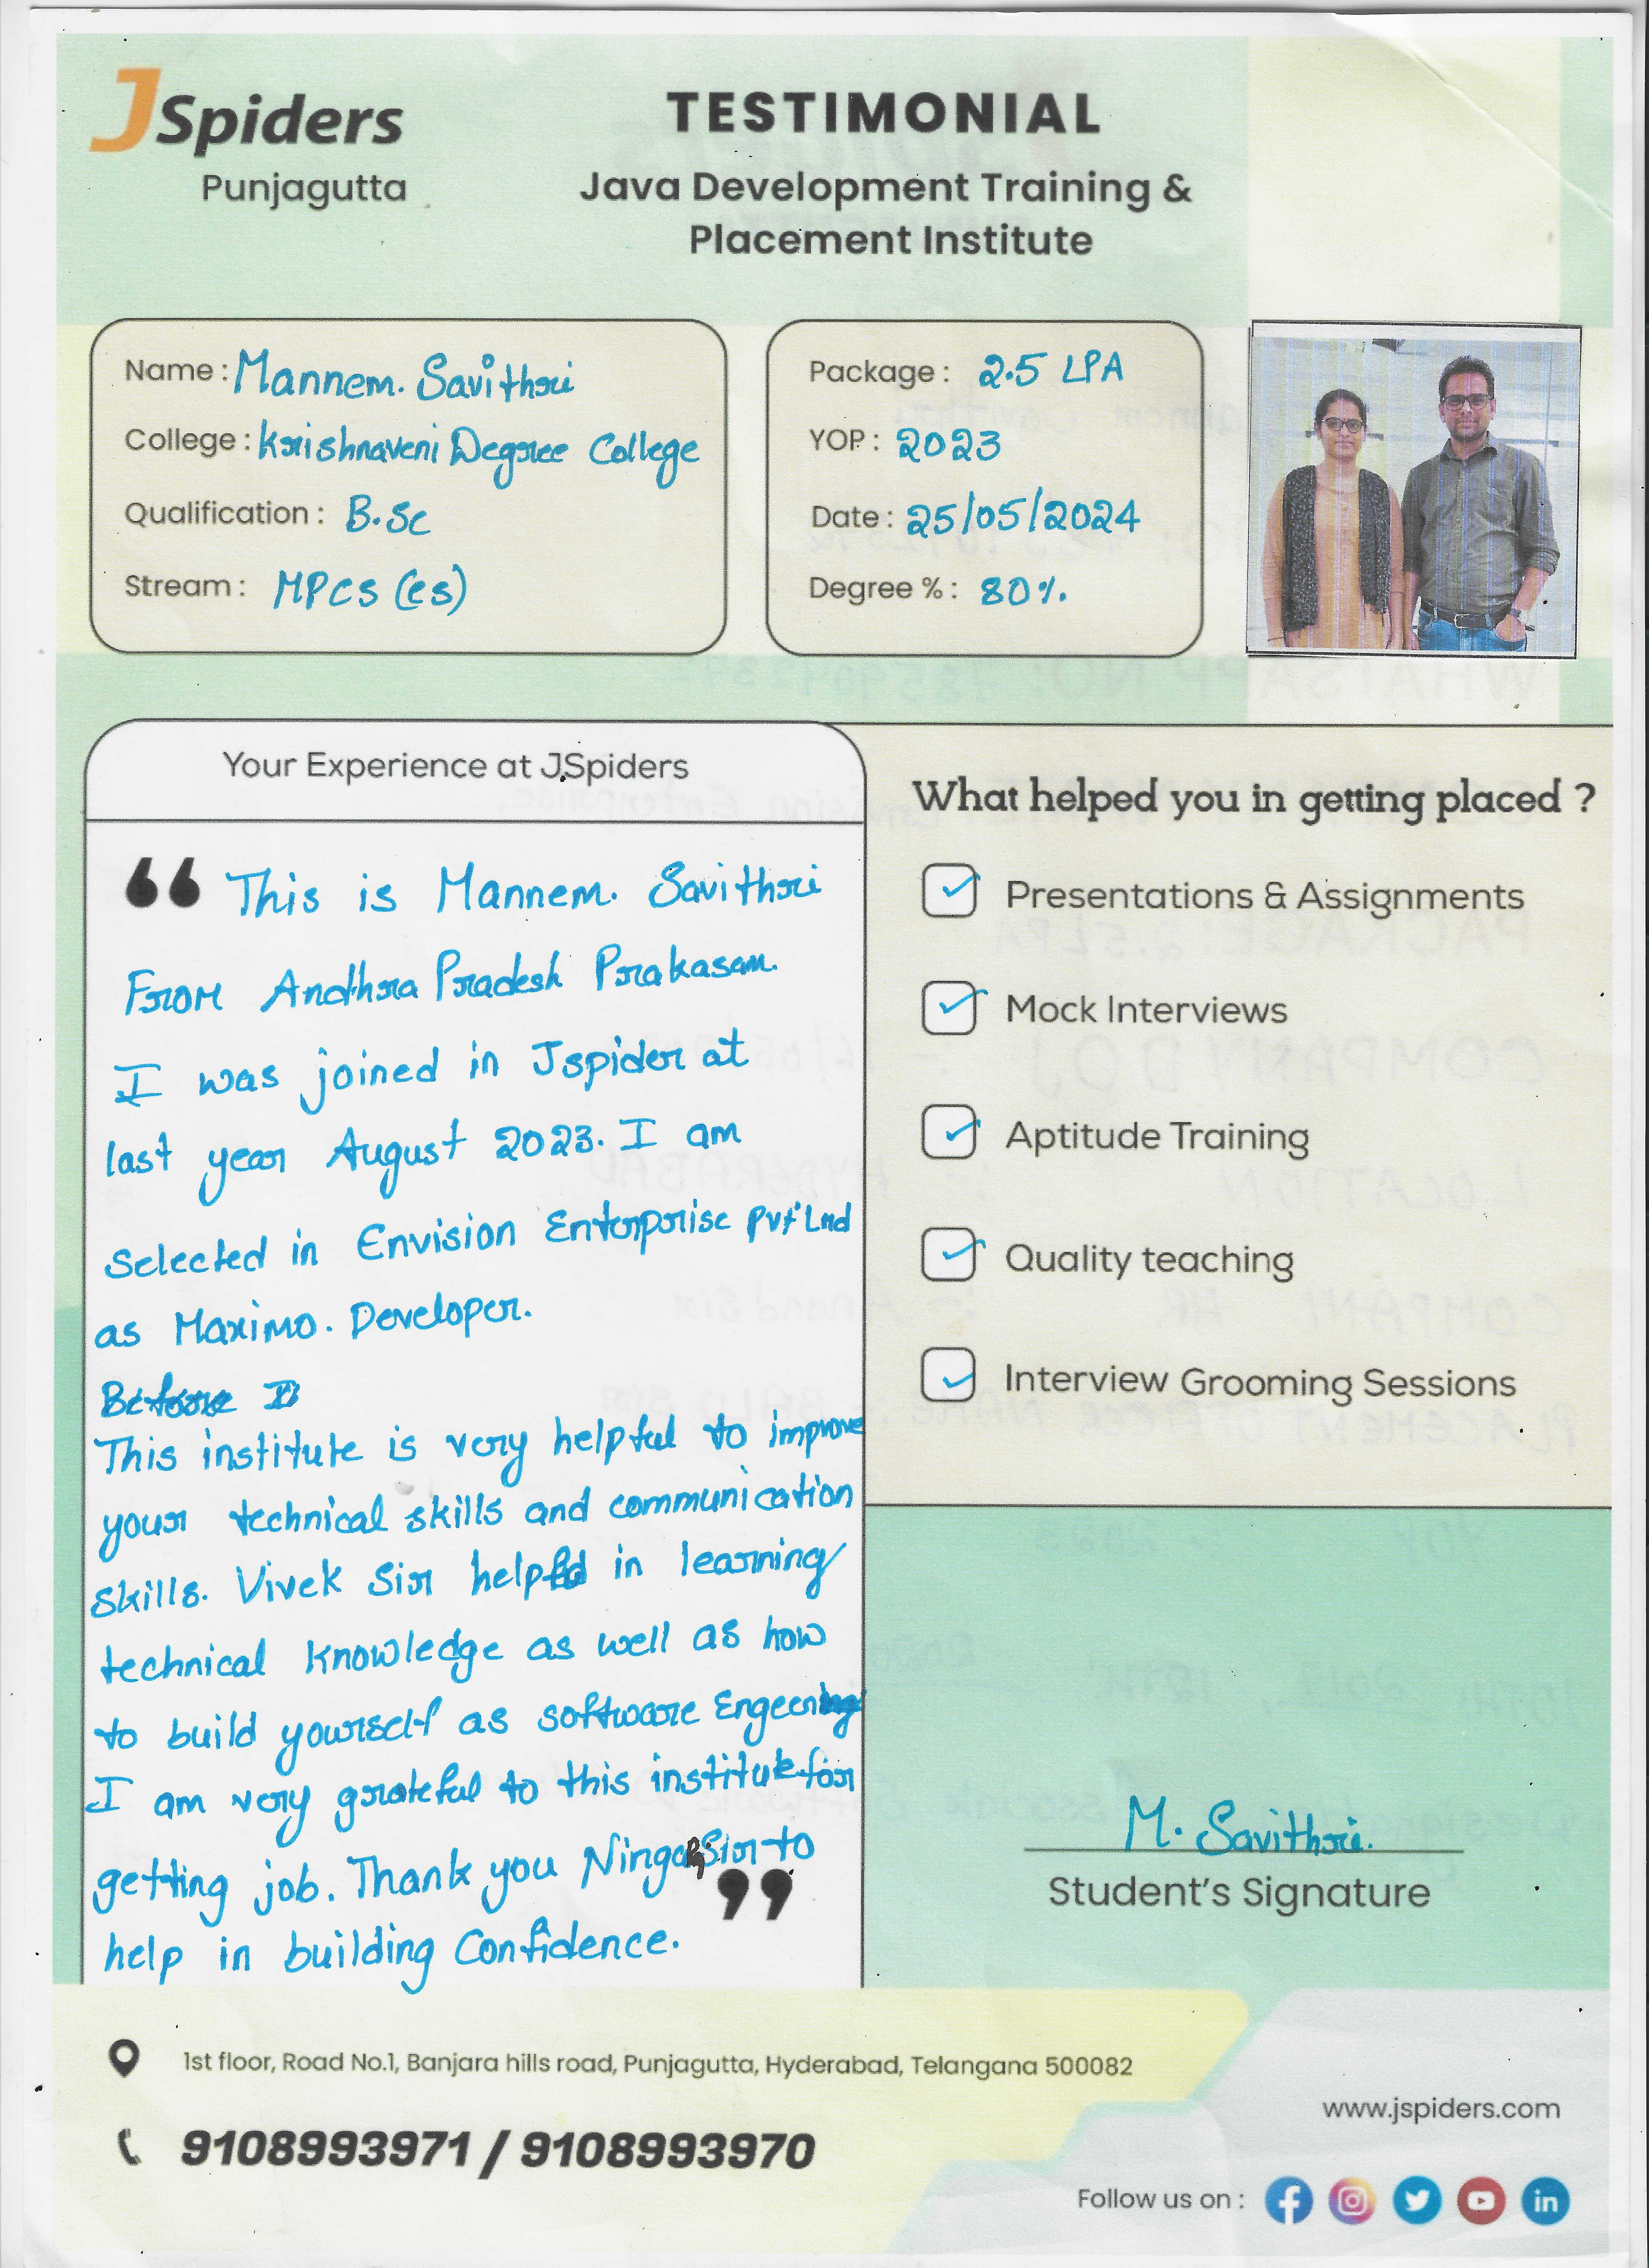 JSpiders
Punjagutta
TESTIMONIAL
Java Development Training &
Placement Institute
Name : Mannem. Savithri
College : Krishnaveni Degree College
Qualification : B.Sc
Stream : MPCS (CS)
Package : 2.5 LPA
YOP : 2023
Date : 25/05/2024
Degree % : 80%
Your Experience at JSpiders
“ This is Mannem. Savithri
From Andhra Pradesh Prakasam.
I was joined in Jspider at
last year August 2023. I am
selected in Envision Enterprise Pvt Lnd
as Maximo. Developer.
Before I
This institute is very helpful to improve
your technical skills and communication
skills. Vivek Sir helped in learning
technical knowledge as well as how
to build yourself as software
I am very grateful to this institute for
getting job. Thank you Sir to
help in building Confidence. ”
What helped you in getting placed ?
Presentations & Assignments
Mock Interviews
Aptitude Training
Quality teaching
Interview Grooming Sessions
M. Savithri.
Student's Signature
1st floor, Road No.1, Banjara hills road, Punjagutta, Hyderabad, Telangana 500082
9108993971 / 9108993970
www.jspiders.com
Follow us on :